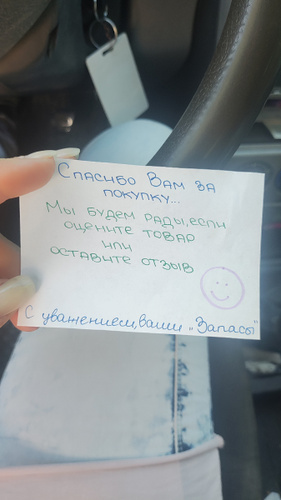 Спасибо Вам за
покупку...
Мы будем рады, если
оцените товар
или
оставите отзыв
С уважением, ваши „Запасы"